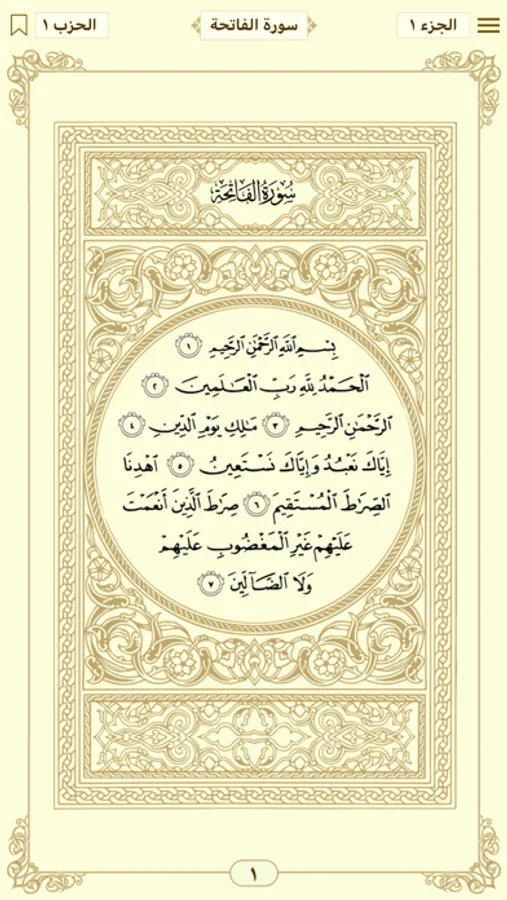 الجزء ١
سورة الفاتحة
الحزب ١
سُورَةُ الْفَاتِحَةِ
بِسْمِ اللَّهِ الرَّحْمَٰنِ الرَّحِيمِ ١
الْحَمْدُ لِلَّهِ رَبِّ الْعَالَمِينَ ٢
الرَّحْمَٰنِ الرَّحِيمِ ٣ مَالِكِ يَوْمِ الدِّينِ ٤
إِيَّاكَ نَعْبُدُ وَإِيَّاكَ نَسْتَعِينُ ٥ اهْدِنَا
الصِّرَاطَ الْمُسْتَقِيمَ ٦ صِرَاطَ الَّذِينَ أَنْعَمْتَ
عَلَيْهِمْ غَيْرِ الْمَغْضُوبِ عَلَيْهِمْ
وَلَا الضَّآلِّينَ ٧
١